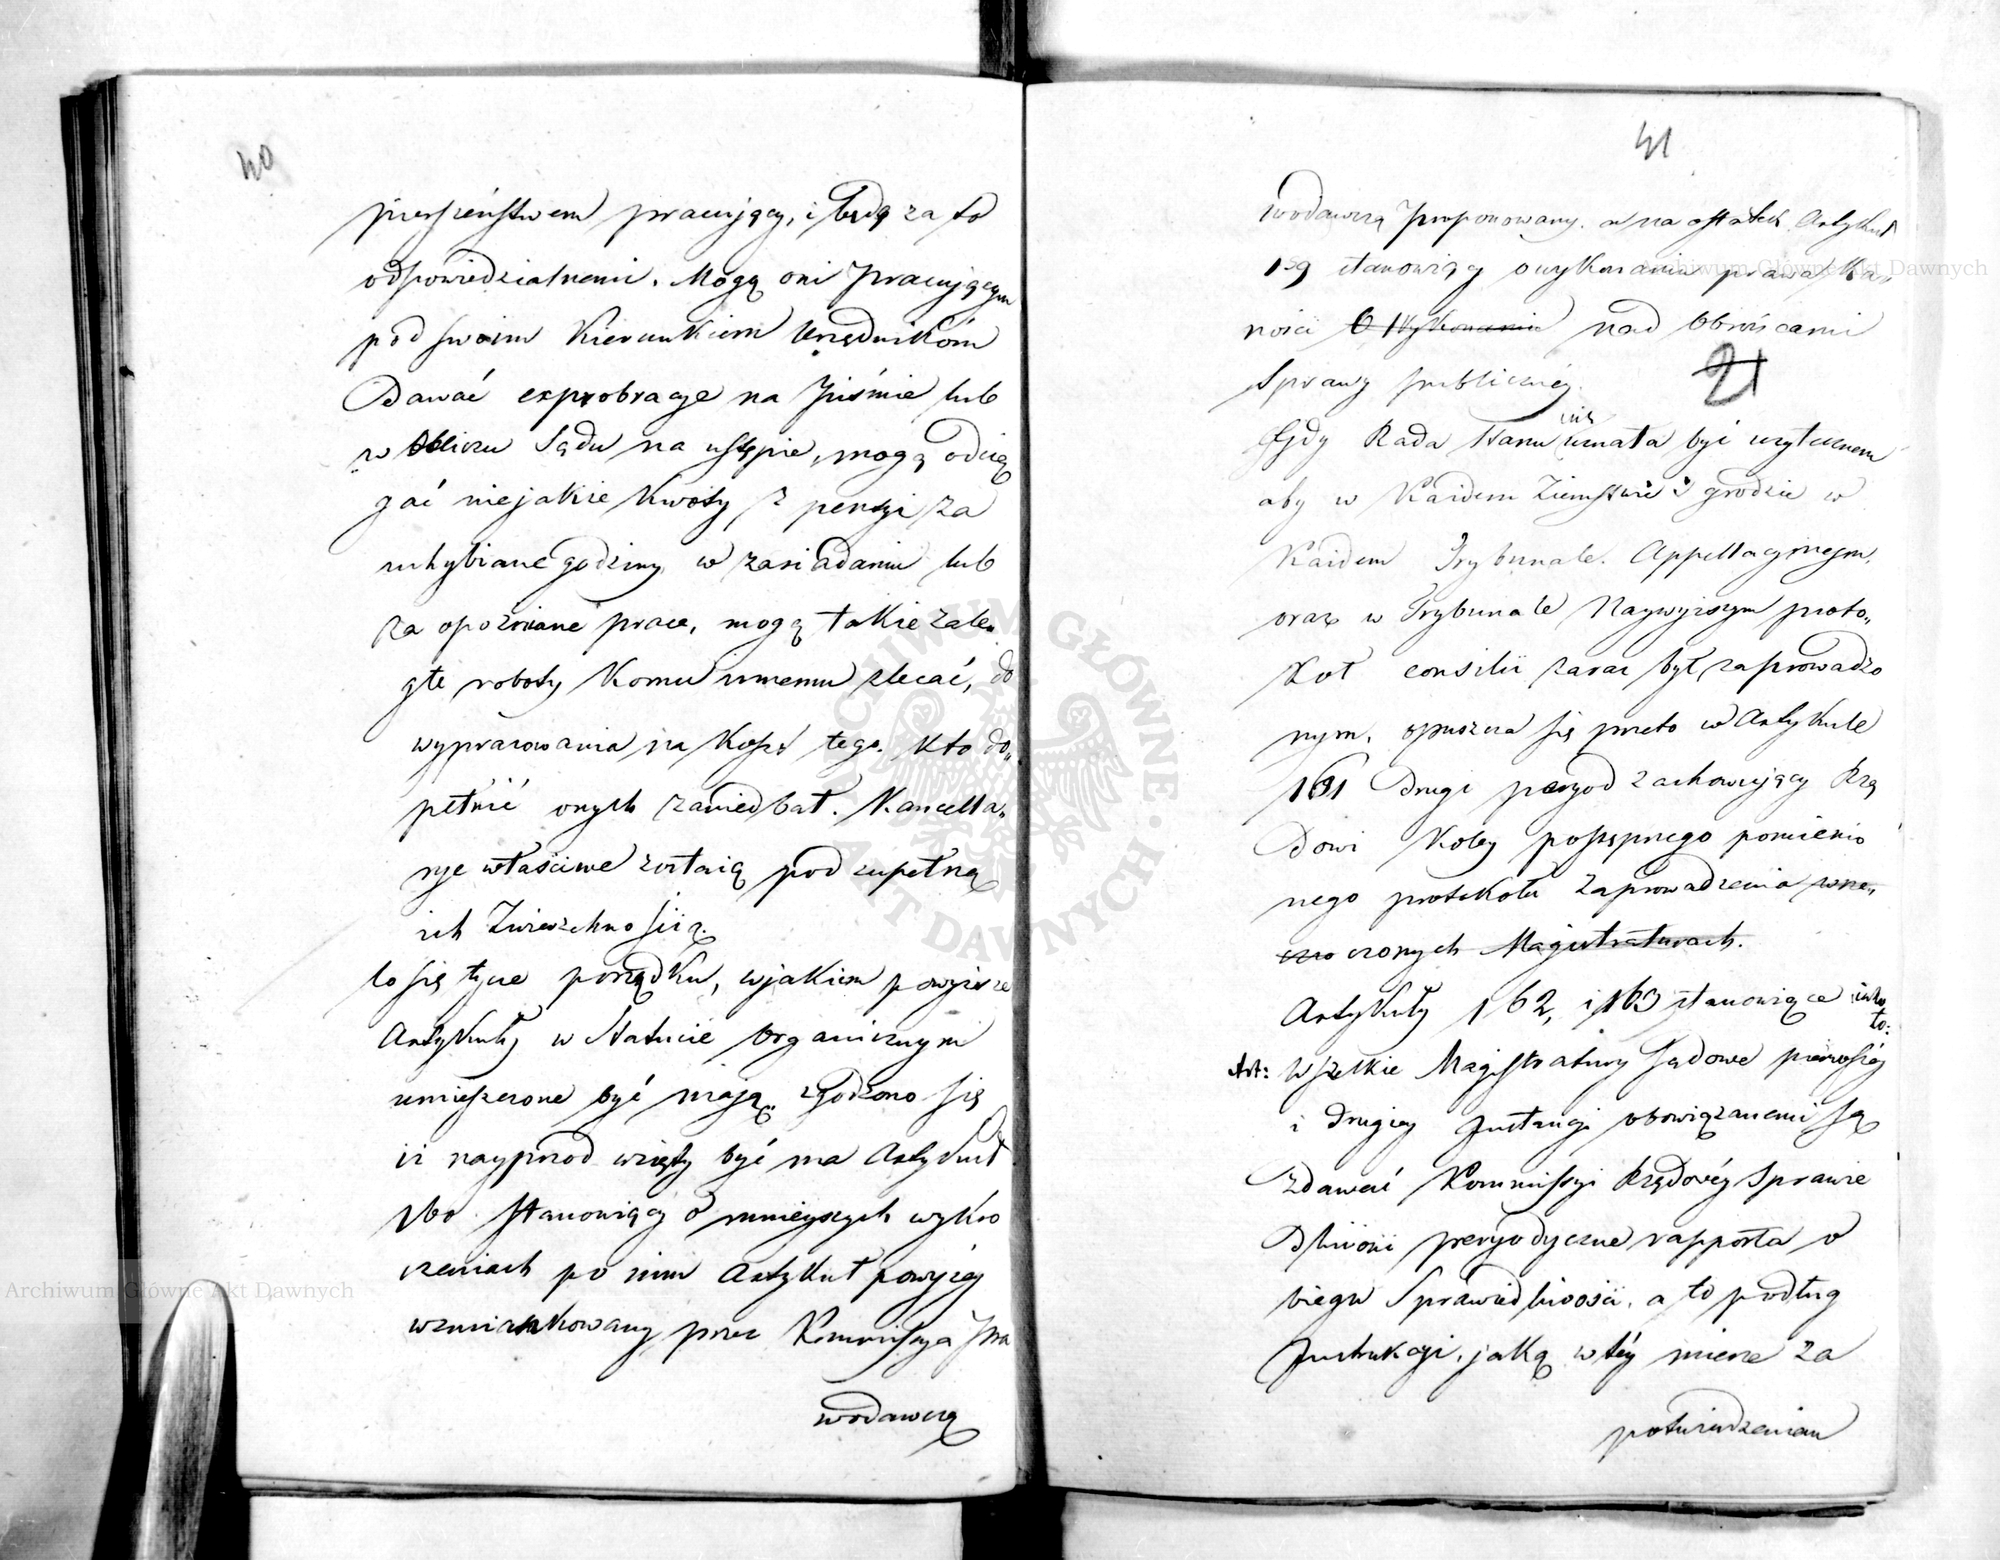 40
pierszeństwem pracujący, i będą za to
odpowiedzialnemi. Mogą oni Pracującym
pod swoim Kierunkiem Urzędników
Dawać exprobracye na Piśmie lub
w obliczu Sądu na ustępie, mogą odcią
gać niejakie Kwoty z pensyi za
uchybiane godziny w zasiadaniu lub
za opoźniane prace, mogą takie zale„
głe roboty Komu innemu zlecać, do
wypracowania na Koszt tego. Kto do„
pełnić onych zaniedbał. Kancella„
rye właściwe zostaią pod zupełną
ich Zwierzchnością.
Co się tycze porządku, w jakiem powyższe
Artykuły w Statucie Organicznym
umieszczone być mają, zgodzono się
iż nayprzod wzięty być ma Artykuł
160. stanowiący o mnieyszych wykro
czeniach po nim Artykuł powyżey
wzmiankowany przez Kommissyą Pra
wodawczą
41
wodawczą proponowany. a na ostatek Artykuł
159 stanowiący o wykonaniu prawa Kar
ności O Wykonania nad Obrońcami
Sprawy publiczney.
21
Gdy Rada Stanu nie uznała być użytecznem
aby w Każdem Ziemstwie i grodzie w
Każdem Trybunale. Appellacyjnem,
oraz w Trybunale Naywyższym proto„
kół consilii zaraz był zaprowadzo
nym, opuszcza się przeto w Artykule
161 Drugi peryod zachowujący Rzą
Dowi Koley postępnego pomienio
nego protokołu Zaprowadzenia wrze„
czonych Magistraturach.
Artykuły 162, i 163 stanowiące iako
to:
Art: Wszelkie Magistratury Sądowe pierwszéy
i drugiey Instancyi obowiązanemi są
zdawać Kommissyi Rządowéy Sprawie
Dliwości peryodyczne rapporta o
biegu Sprawiedliwości, a to podług
Instrukcyi, jaką w téy mierze za
potwierdzeniem
Archiwum Główne Akt Dawnych
Archiwum Główne Akt Dawnych
ARCHIWUM GŁÓWNE AKT DAWNYCH